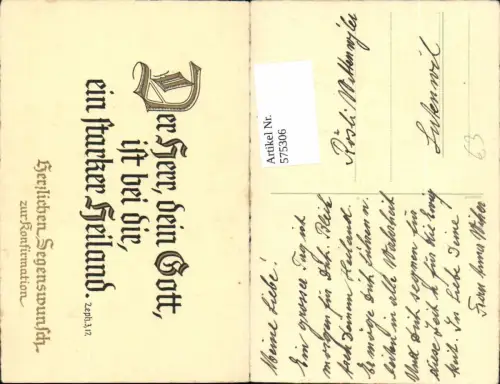 Der Herr, dein Gott,
ist bei dir,
ein starker Heiland.
Zeph. 3,17.
Herzlichen Segenswunsch
zur Konfirmation
Artikel Nr.
575306
Rösli Wettenwyler
Lutenwil
63
Meine Liebe!
Ein grosser Tag ist
morgen für Dich. Bleib
treu Deinem Heiland.
Er möge Dich führen u.
leiten in alle Wahrheit
Und Dich segnen für
diese Zeit & für die Ewig
keit. In Liebe Deine
Frau Anna Weber